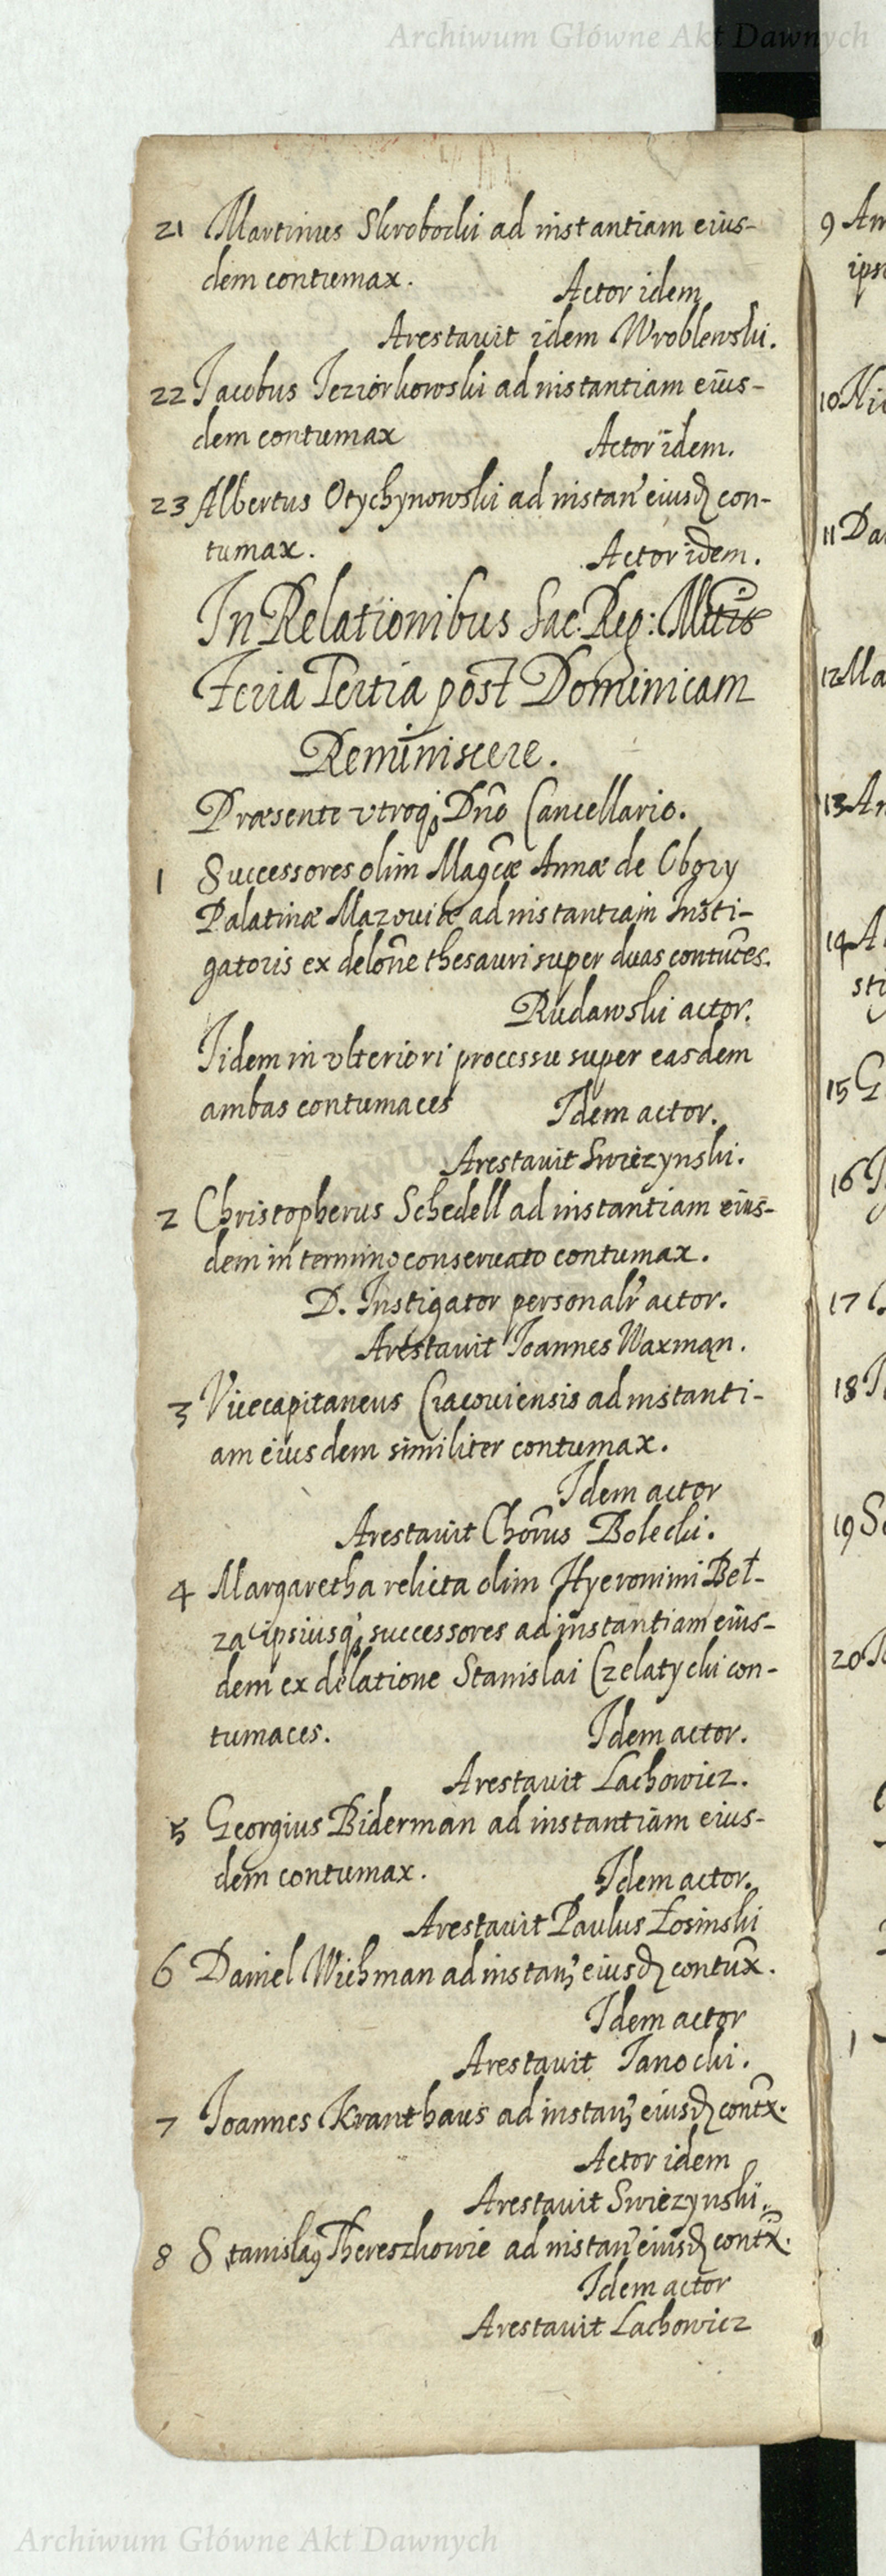 Archiwum Główne Akt Dawnych
21 Martinus Skrobocki ad instantiam eius-
dem contumax.
Actor idem
Arestavit idem Wroblewski.
22 Jacobus Jeziorkowski ad instantiam eius-
dem contumax
Actor idem.
23 Albertus Otychynowski ad instan eiusd con-
tumax.
Actor idem.
In Relationibus Sac: Reg: Mttis
Feria Tertia post Dominicam
Reminiscere.
Præsente vtroq Dno Cancellario.
1 Successores olim Magcæ Annæ de Obory
Palatinæ Mazouiæ ad instantiam Insti-
gatoris ex delone thesauri super duas contuces.
Rudawski actor.
Iidem in vlteriori processu super easdem
ambas contumaces
Idem actor.
Arestauit Swiezynski.
2 Christopherus Schedell ad instantiam eius-
dem in termino conseruato contumax.
D. Instigator personalr actor.
Arestauit Joannes Waxman.
3 Vicecapitaneus Cracouiensis ad instanti-
am eiusdem similiter contumax.
Idem actor
Arestauit Chorus Bolecki.
4 Margaretha relicta olim Hyeronimi Beł-
za ipsiusq successores ad instantiam eius-
dem ex delatione Stanislai Czelatycki con-
tumaces.
Idem actor.
Arestauit Lachowicz.
5 Georgius Biderman ad instantiam eius-
dem contumax.
Idem actor.
Arestauit Paulus Łosinski
6 Daniel Wichman ad instan eiusd contux.
Idem actor
Arestauit Janocki.
7 Joannes Kranthaus ad instan eiusd contx.
Actor idem
Arestauit Swiezynski.
8 Stanislaq Thereszkowic ad instan eiusd contx.
Idem actor
Arestauit Lachowicz
9
ips
10
11
12 Ma
13
14
sti
15 G
16
17
18
19
20
1
Archiwum Główne Akt Dawnych